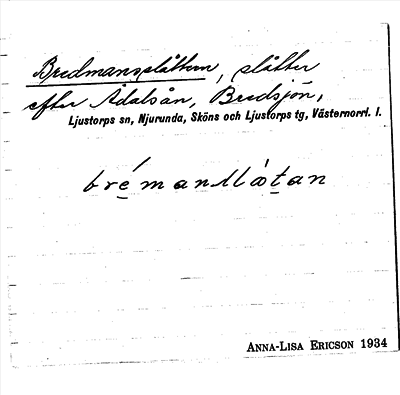 Bredmansslåttern, slåtter
efter Ådalsån, Bredsjön,
Ljustorps sn, Njurunda, Sköns och Ljustorps tg, Västernorrl. l.
ANNA-LISA ERICSON 1934